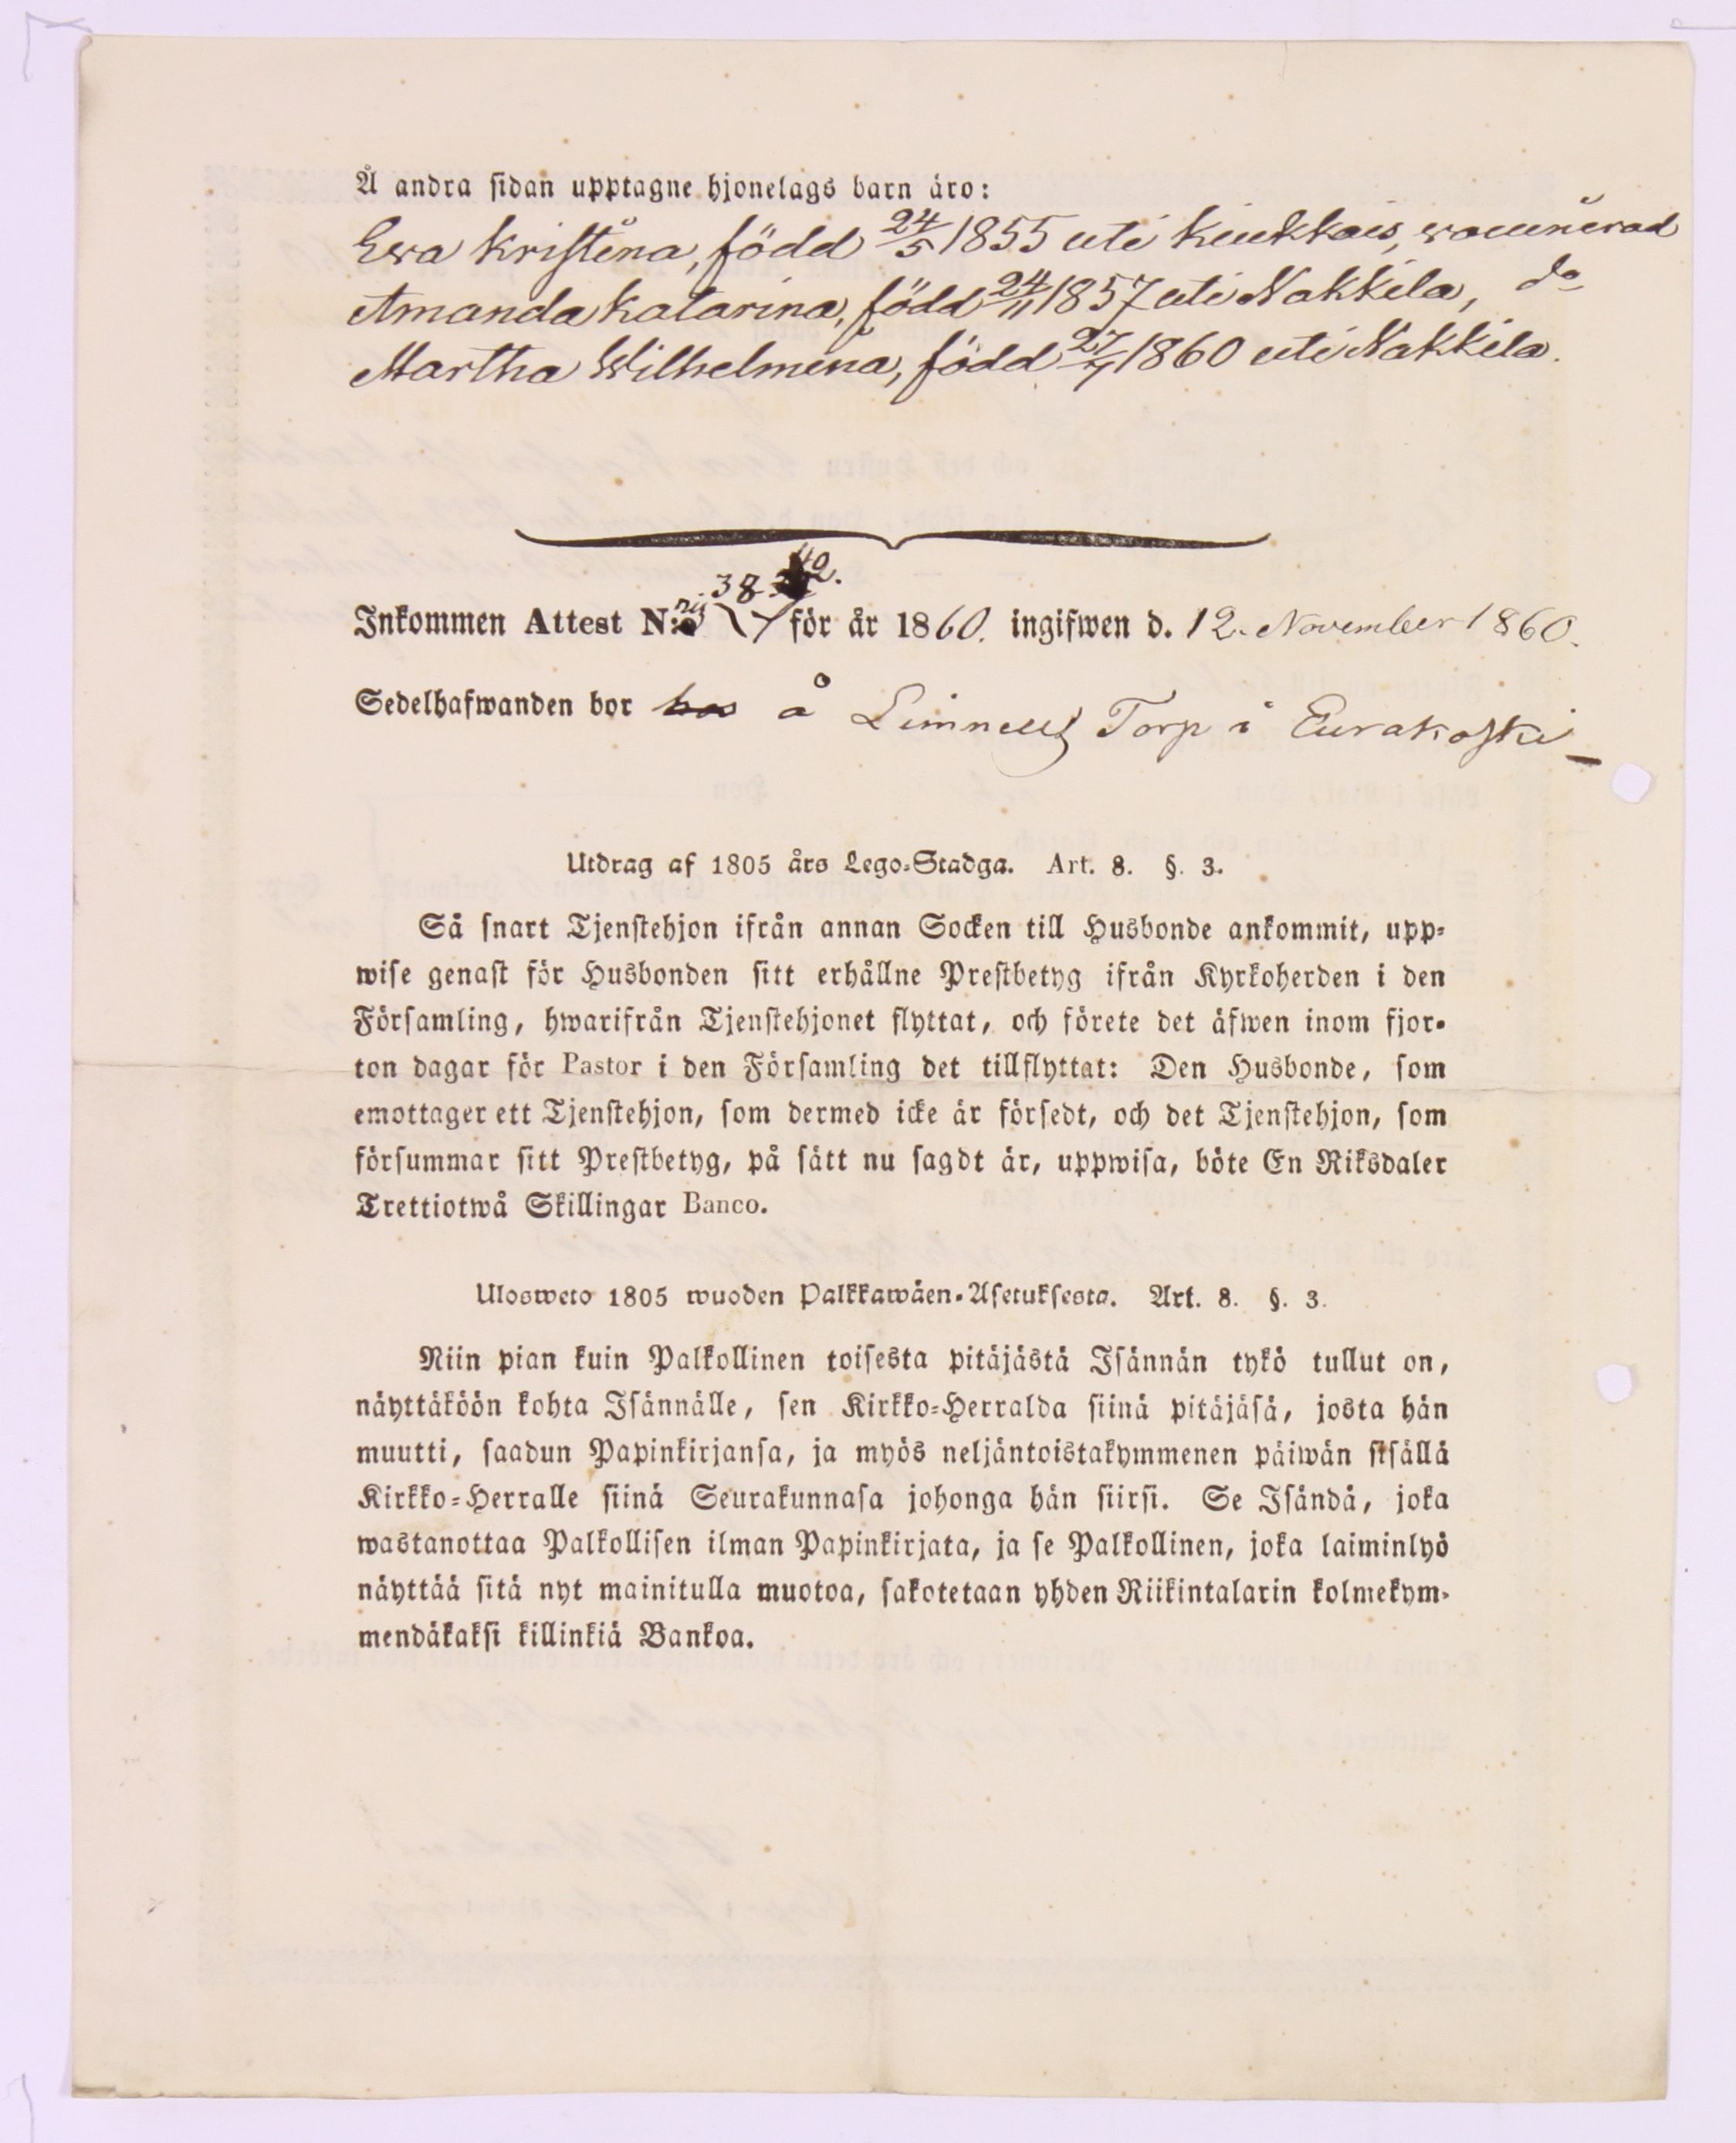 Å andra sidan upptagne hjonelags barn äro:
Ewa Kristina, född 24/5 1855 uti Kiukkais, waccinerad
Amanda Katarina, född 24/11 1857 uti Nakkila, do
Martha Wilhelmina, född 27/7 1860 uti Nakkila.
38 42.
Inkommen Attest N:o för år 1860. ingifwen d. 12. November 1860.
Sedelhafwanden bor hos å Torp i Eurakoski
Utdrag af 1805 års Lego-Stadga. Art. 8. §. 3.
Så snart Tjenstehjon ifrån annan Socken till Husbonde ankommit, upp-
wise genast för Husbonden sitt erhållne Prestbetyg ifrån Kyrkoherden i den
Församling, hwarifrån Tjenstehjonet flyttat, och förete det äfwen inom fjor-
ton dagar för Pastor i den Församling det tillflyttat: Den Husbonde, som
emottager ett Tjenstehjon, som dermed icke är försedt, och det Tjenstehjon, som
försummar sitt Prestbetyg, på sätt nu sagdt är, uppwisa, böte En Riksdaler
Trettiotwå Skillingar Banco.
Ulosweto 1805 wuoden Palkkawäen-Asetuksesta. Art. 8. §. 3.
Niin pian kuin Palkollinen toisesta pitäjästä Isännän tykö tullut on,
näyttäköön kohta Isännälle, sen Kirkko-Herralda siinä pitäjäsä, josta hän
muutti, saadun Papinkirjansa, ja myös neljäntoistakymmenen päiwän sisällä
Kirkko-Herralle siinä Seurakunnasa johonga hän siirsi. Se Isändä, joka
wastanottaa Palkollisen ilman Papinkirjata, ja se Palkollinen, joka laiminlyö
näyttää sitä nyt mainitulla muotoa, sakotetaan yhden Riikintalarin kolmekym-
mendäkaksi killinkiä Bankoa.